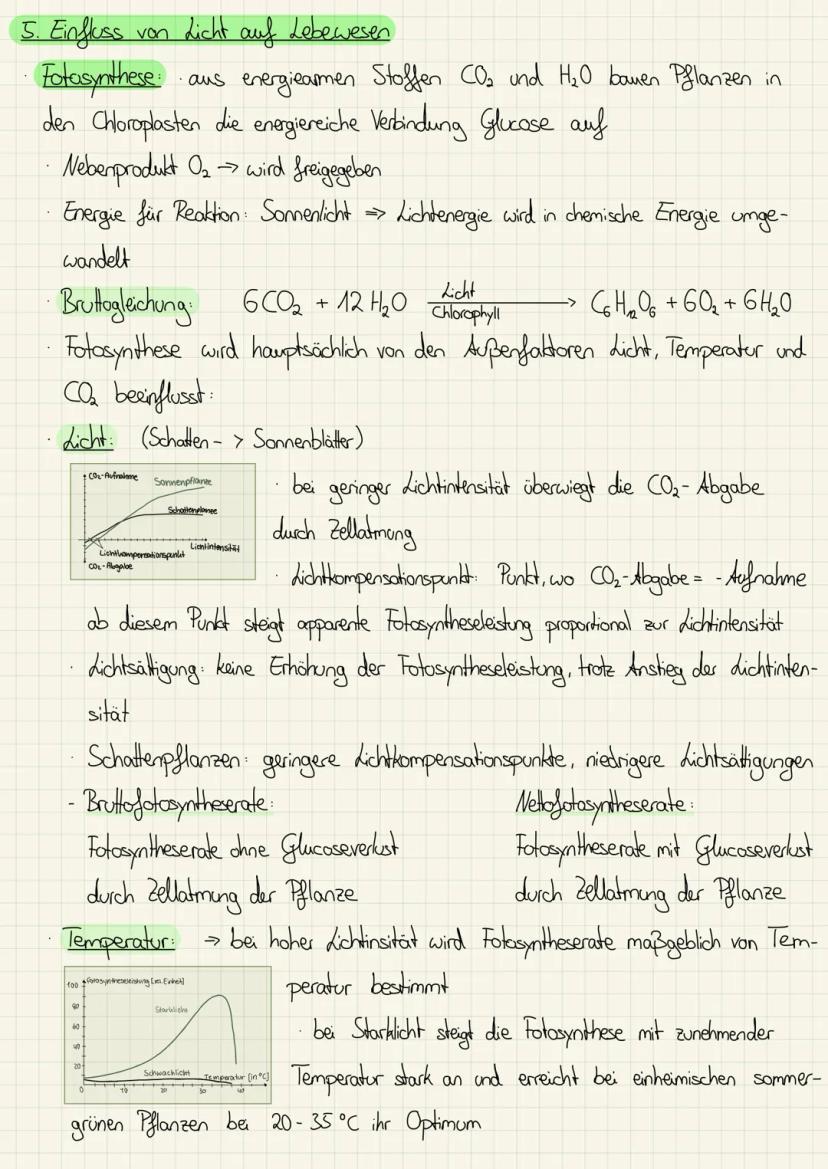 5. Einfluss von Licht auf Lebewesen
· Fotosynthese: · aus energiearmen Stoffen CO₂ und H₂O bauen Pflanzen in
den Chloroplasten die energiereiche Verbindung Glucose auf
· Nebenprodukt O₂ → wird freigegeben
· Energie für Reaktion: Sonnenlicht ⇒ Lichtenergie wird in chemische Energie umge-
wandelt
· Bruttogleichung: 6CO₂ + 12 H₂O Licht Chlorophyll → C₆H₁₂O₆ + 6O₂ + 6H₂O
· Fotosynthese wird hauptsächlich von den Außenfaktoren Licht, Temperatur und
CO₂ beeinflusst:
· Licht: (Schatten- > Sonnenblätter)
CO₂-Aufnahme
Sonnenpflanze
Schattenpflanze
Lichtintensität
Lichtkompensationspunkt
CO₂-Abgabe
· bei geringer Lichtintensität überwiegt die CO₂-Abgabe
durch Zellatmung
· Lichtkompensationspunkt: Punkt, wo CO₂-Abgabe = -Aufnahme
ab diesem Punkt steigt apparente Fotosyntheseleistung proportional zur Lichtintensität
· Lichtsättigung: keine Erhöhung der Fotosyntheseleistung, trotz Anstieg der Lichtinten-
sität
· Schattenpflanzen: geringere Lichtkompensationspunkte, niedrigere Lichtsättigungen
- Bruttofotosyntheserate: Nettofotosyntheserate:
Fotosyntheserate ohne Glucoseverlust Fotosyntheserate mit Glucoseverlust
durch Zellatmung der Pflanze durch Zellatmung der Pflanze
· Temperatur: → bei hoher Lichtinsität wird Fotosyntheserate maßgeblich von Tem-
peratur bestimmt
Fotosyntheseleistung [rel. Einheit]
100
80
60
40
20
Starklicht
Schwachlicht
Temperatur [in °C]
0 10 20 30 40
· bei Starklicht steigt die Fotosynthese mit zunehmender
Temperatur stark an und erreicht bei einheimischen sommer-
grünen Pflanzen bei 20-35 °C ihr Optimum